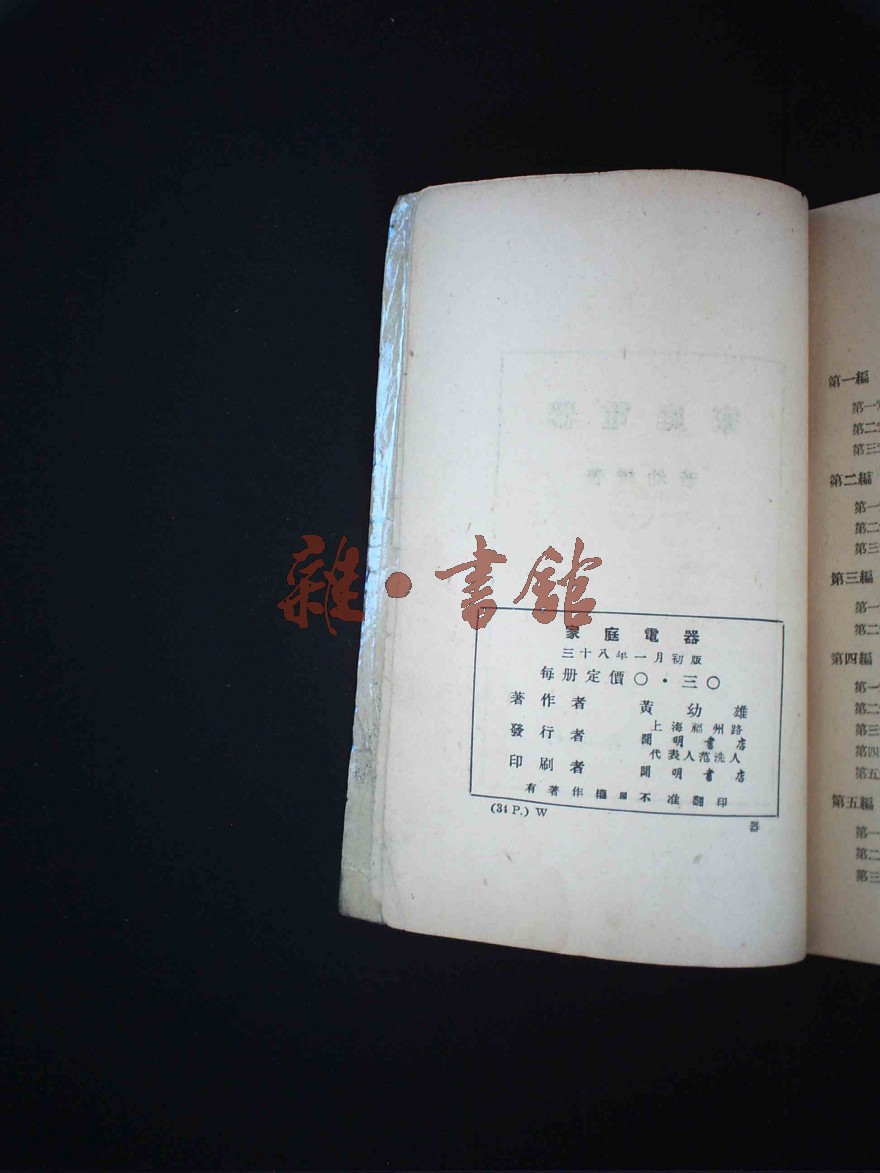 雜·書館
家庭電器
三十八年一月初版
每册定價〇·三〇
著作者 黃幼雄
發行者 上海福州路
開明書店
代表人范洗人
印刷者 開明書店
有著作權不准翻印
(34 P.) W
器
第一編
第一
第二
第三
第二編
第一
第二
第三
第三編
第一
第二
第四編
第一
第二
第三
第四
第五
第五編
第一
第二
第三